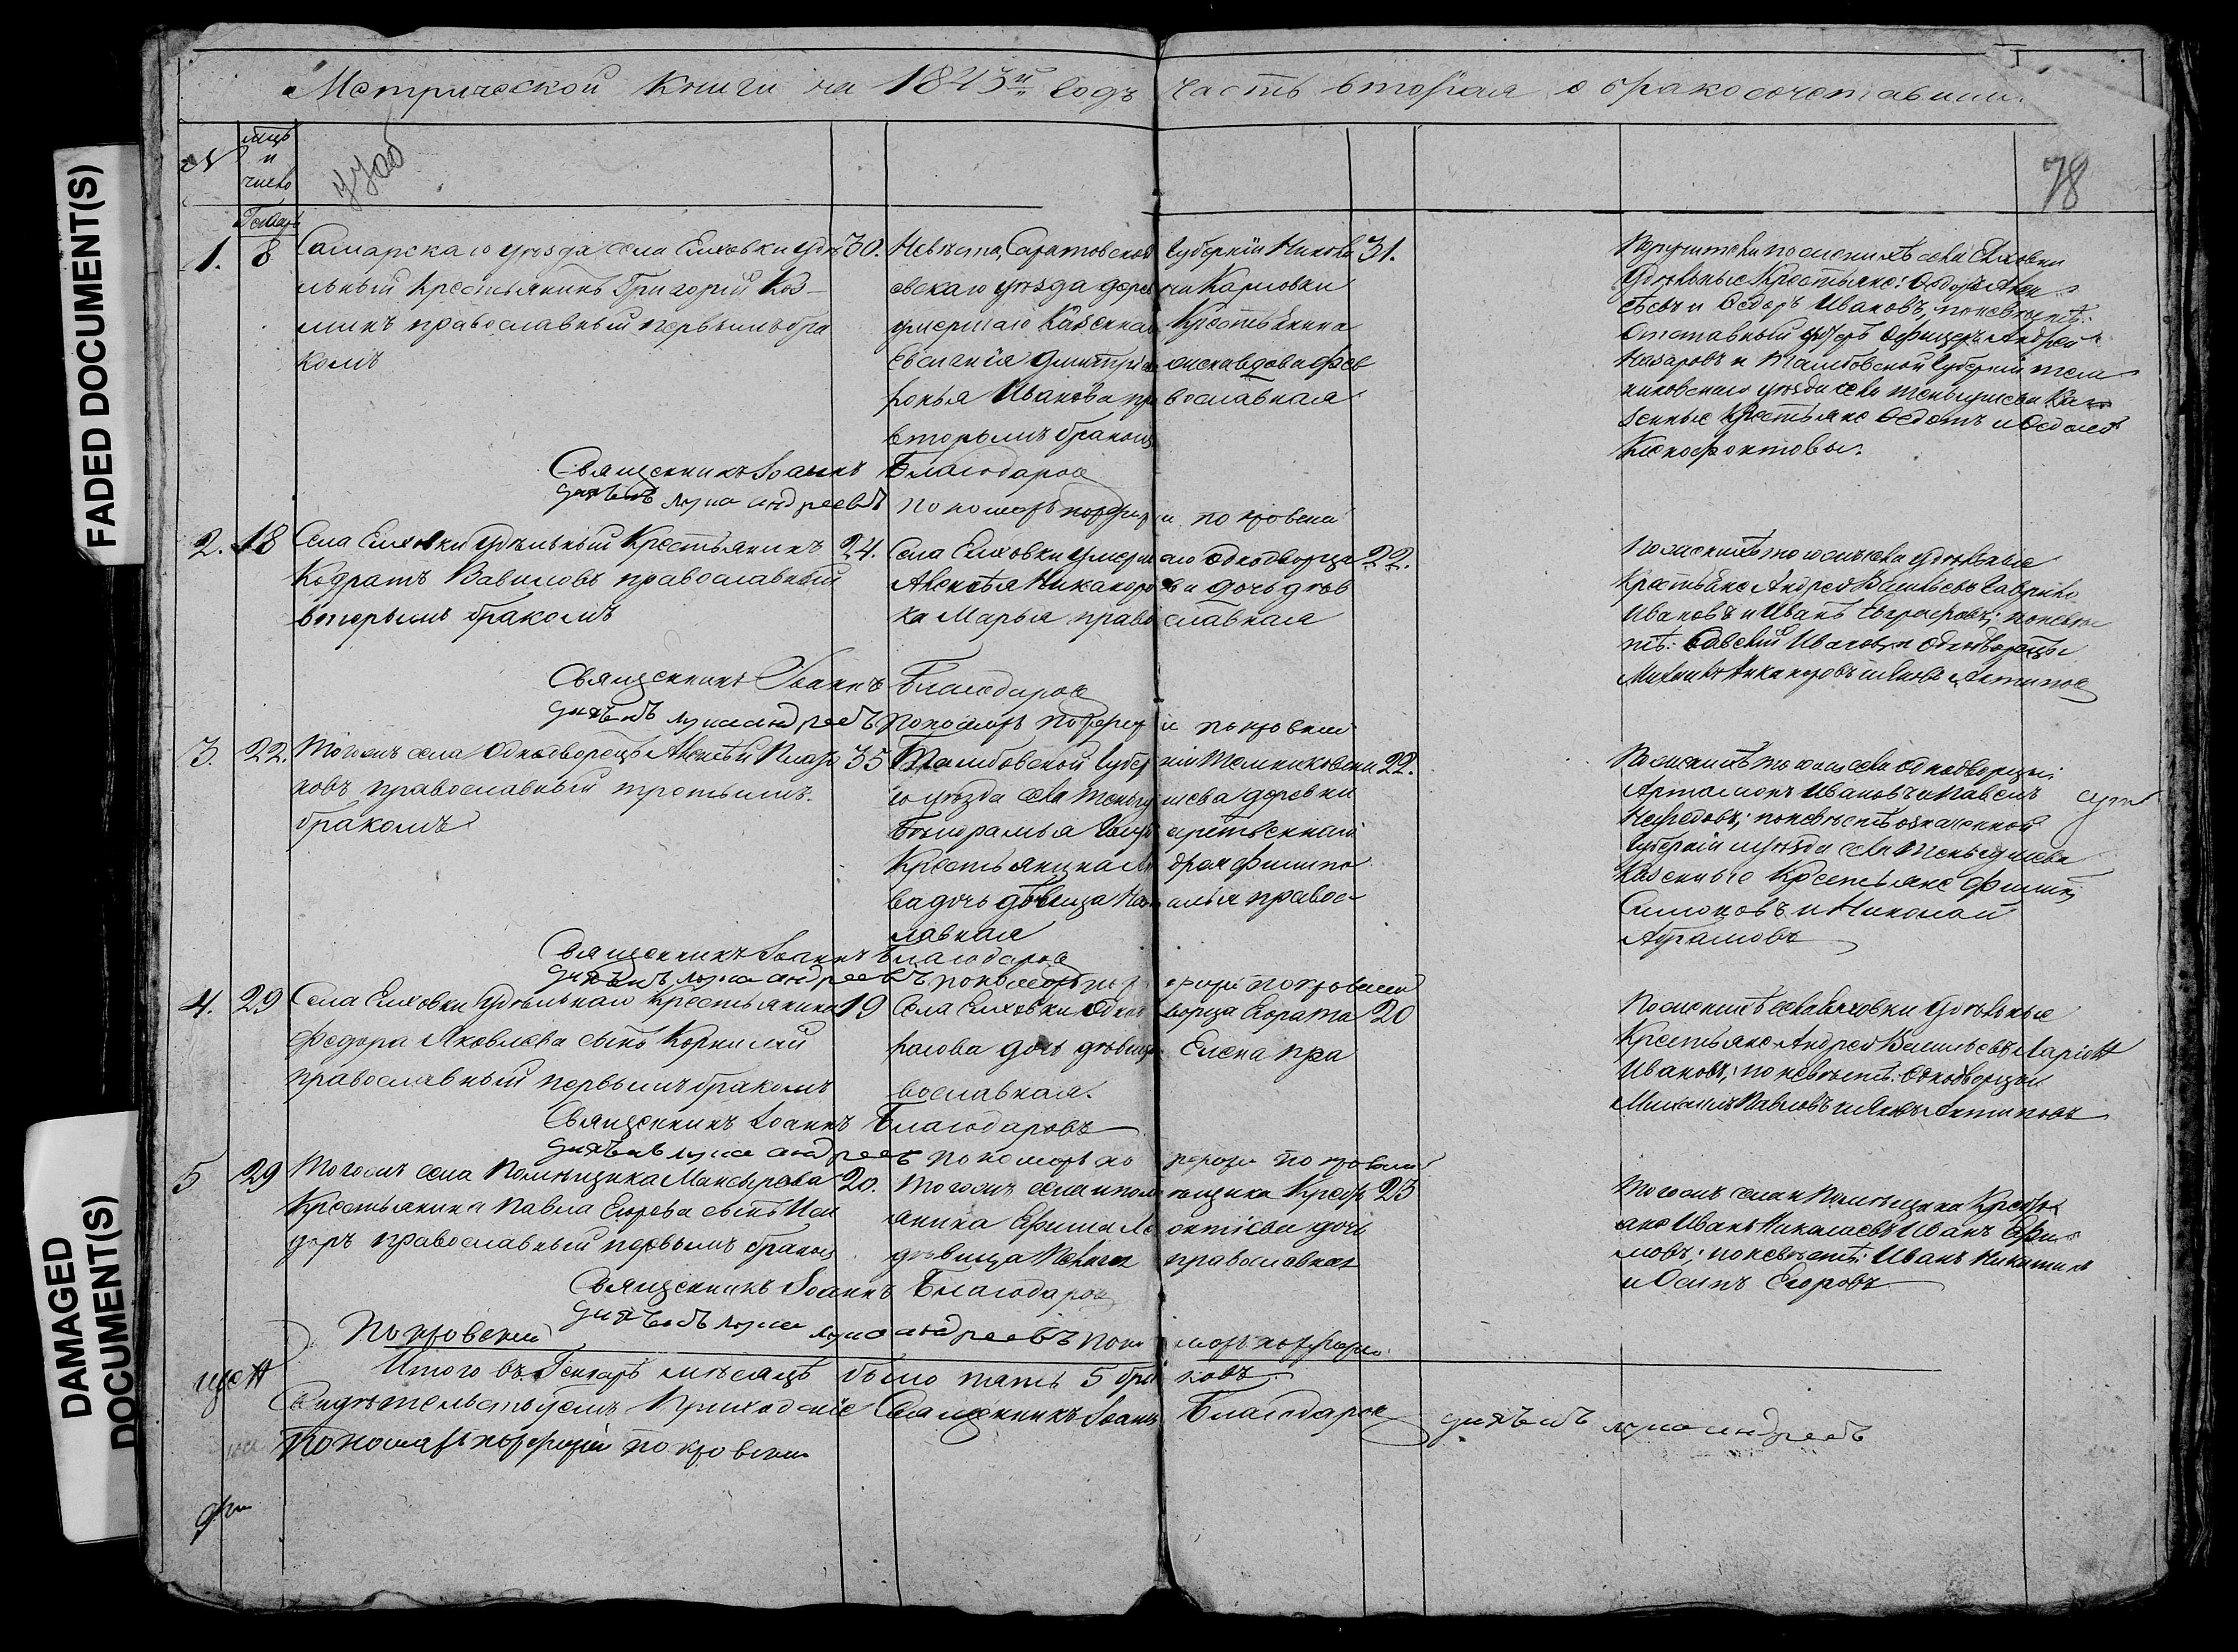 FADED DOCUMENT(S)
DAMAGED DOCUMENT(S)
Метрической книги на 1843й годъ часть вторая о бракосочетавши.
78
мцъ
и
число
Генварь
1. 8 Самарскаго уѣзда села Елховки удѣ
льный крестьянинъ Григорій Коз
минъ православный первымъ бра
комъ
30.
Невѣста, Саратовской губерніи Никола
евскаго уѣзда дерев ни Карловки
умершаго Казенна Крестьянина
Евсигнія Дмитріе жена вдова Фев
ронья Иванова пра вославная
вторымъ бракомъ
31.
Поручители по женихѣ села Елховки
Удѣльные Крестьяне: Ѳедоръ Алек
сѣевъ и Ѳедоръ Ивановъ, по невѣстѣ:
Отставный унтеръ офицеръ Андрей
Назаровъ и Тамбовской губерніи Тем
никовскаго уѣзда села Теньгушева Ка
зенные крестьяне Ѳедотъ и Ѳедосей
Ксенофонтовы.
Священникъ Іоаннъ Благодаров
дьяконъ Лука Андреевъ пономарь Порфирі и Покровскій
2. 18 Села Елховки удѣльный Крестьянинъ
Кодратъ Вавиловъ православный
вторымъ бракомъ
24.
Села Елховки умерш аго однодворца
Алексѣя Никаноро ва дочь дѣв
ка Марья право славная
22.
По женихѣ того жъ села удѣльные
Крестьяне Андрей Васильевъ Гаврило
Ивановъ и Иванъ Евграфовъ; по невѣс
тѣ: Савелій Ивановъ и однодворцы
Михайло Никаноровъ и Яковъ Антипов
Священникъ Іоаннъ Благодаров
дьяконъ Лука Андреевъ пономарь Порфирі и Покровскій
3. 22. Того жъ села Однодворецъ Алексѣй Плато
новъ православный третьимъ
бракомъ
35
Тамбовской губер ніи Темниковска
го уѣзда села Теньгу шева деревни
Крестьянина Ан дрея Филипо
ва дочь дѣвица На алья правос
лавная
22.
По женихѣ того жъ села однодворцы
Артамонъ Ивановъ и Павелъ
Нефедовъ; по невѣстѣ означенной
губерніи и уѣзда села Теньгушева
Казенные Крестьяне Филипъ
Симоновъ и Николай
Абрамовъ
Священникъ Іоаннъ Благодаров
дьяконъ Лука Андреевъ пономарь Пор фирій Покровскій
4. 29 Села Елховки Удѣльнаго крестьянина
Федора Яковлева сынъ Корнилій
православный первымъ бракомъ
19
Села Елховки Однод ворца Кодрата
расова дочь дѣвица Елена пра
вославная.
20
По женихѣ села Елховки Удѣльные
Крестьяне Андрей Васильевъ Ларіон
Ивановъ; по невѣстѣ: Однодворцы
Михаилъ Павловъ и Яковъ Антиповъ
Священникъ Іоаннъ Благодаровъ
дьяконъ Лука Андреевъ пономарь По рфирій Покровскій
5 29 Того жъ села помѣщика Мансырева
Крестьянина Павла Егорова сынъ Иси
доръ православный первымъ бракомъ
20.
Того жъ села и пом ѣщика Кресть
янина Ефима Ле онтіева дочь
дѣвица Пелагея православная
23
Того жъ села и Помѣщика Кресть
яне Иванъ Николаевъ Иванъ Ефи
мовъ; по невѣстѣ: Иванъ Никитинъ
и Осипъ Егоровъ
Священникъ Іоаннъ Благодаров
дьяконъ Лука Андреевъ поно марь Порфирій
Покровскій
Итого въ Генварѣ мѣсяцѣ было пять 5 бра ковъ
Свидѣтельствуемъ Приходскіе Священникъ Іоаннъ Благодаров дьяконъ Лука Андреевъ
Пономарь Порфирій Покровскій